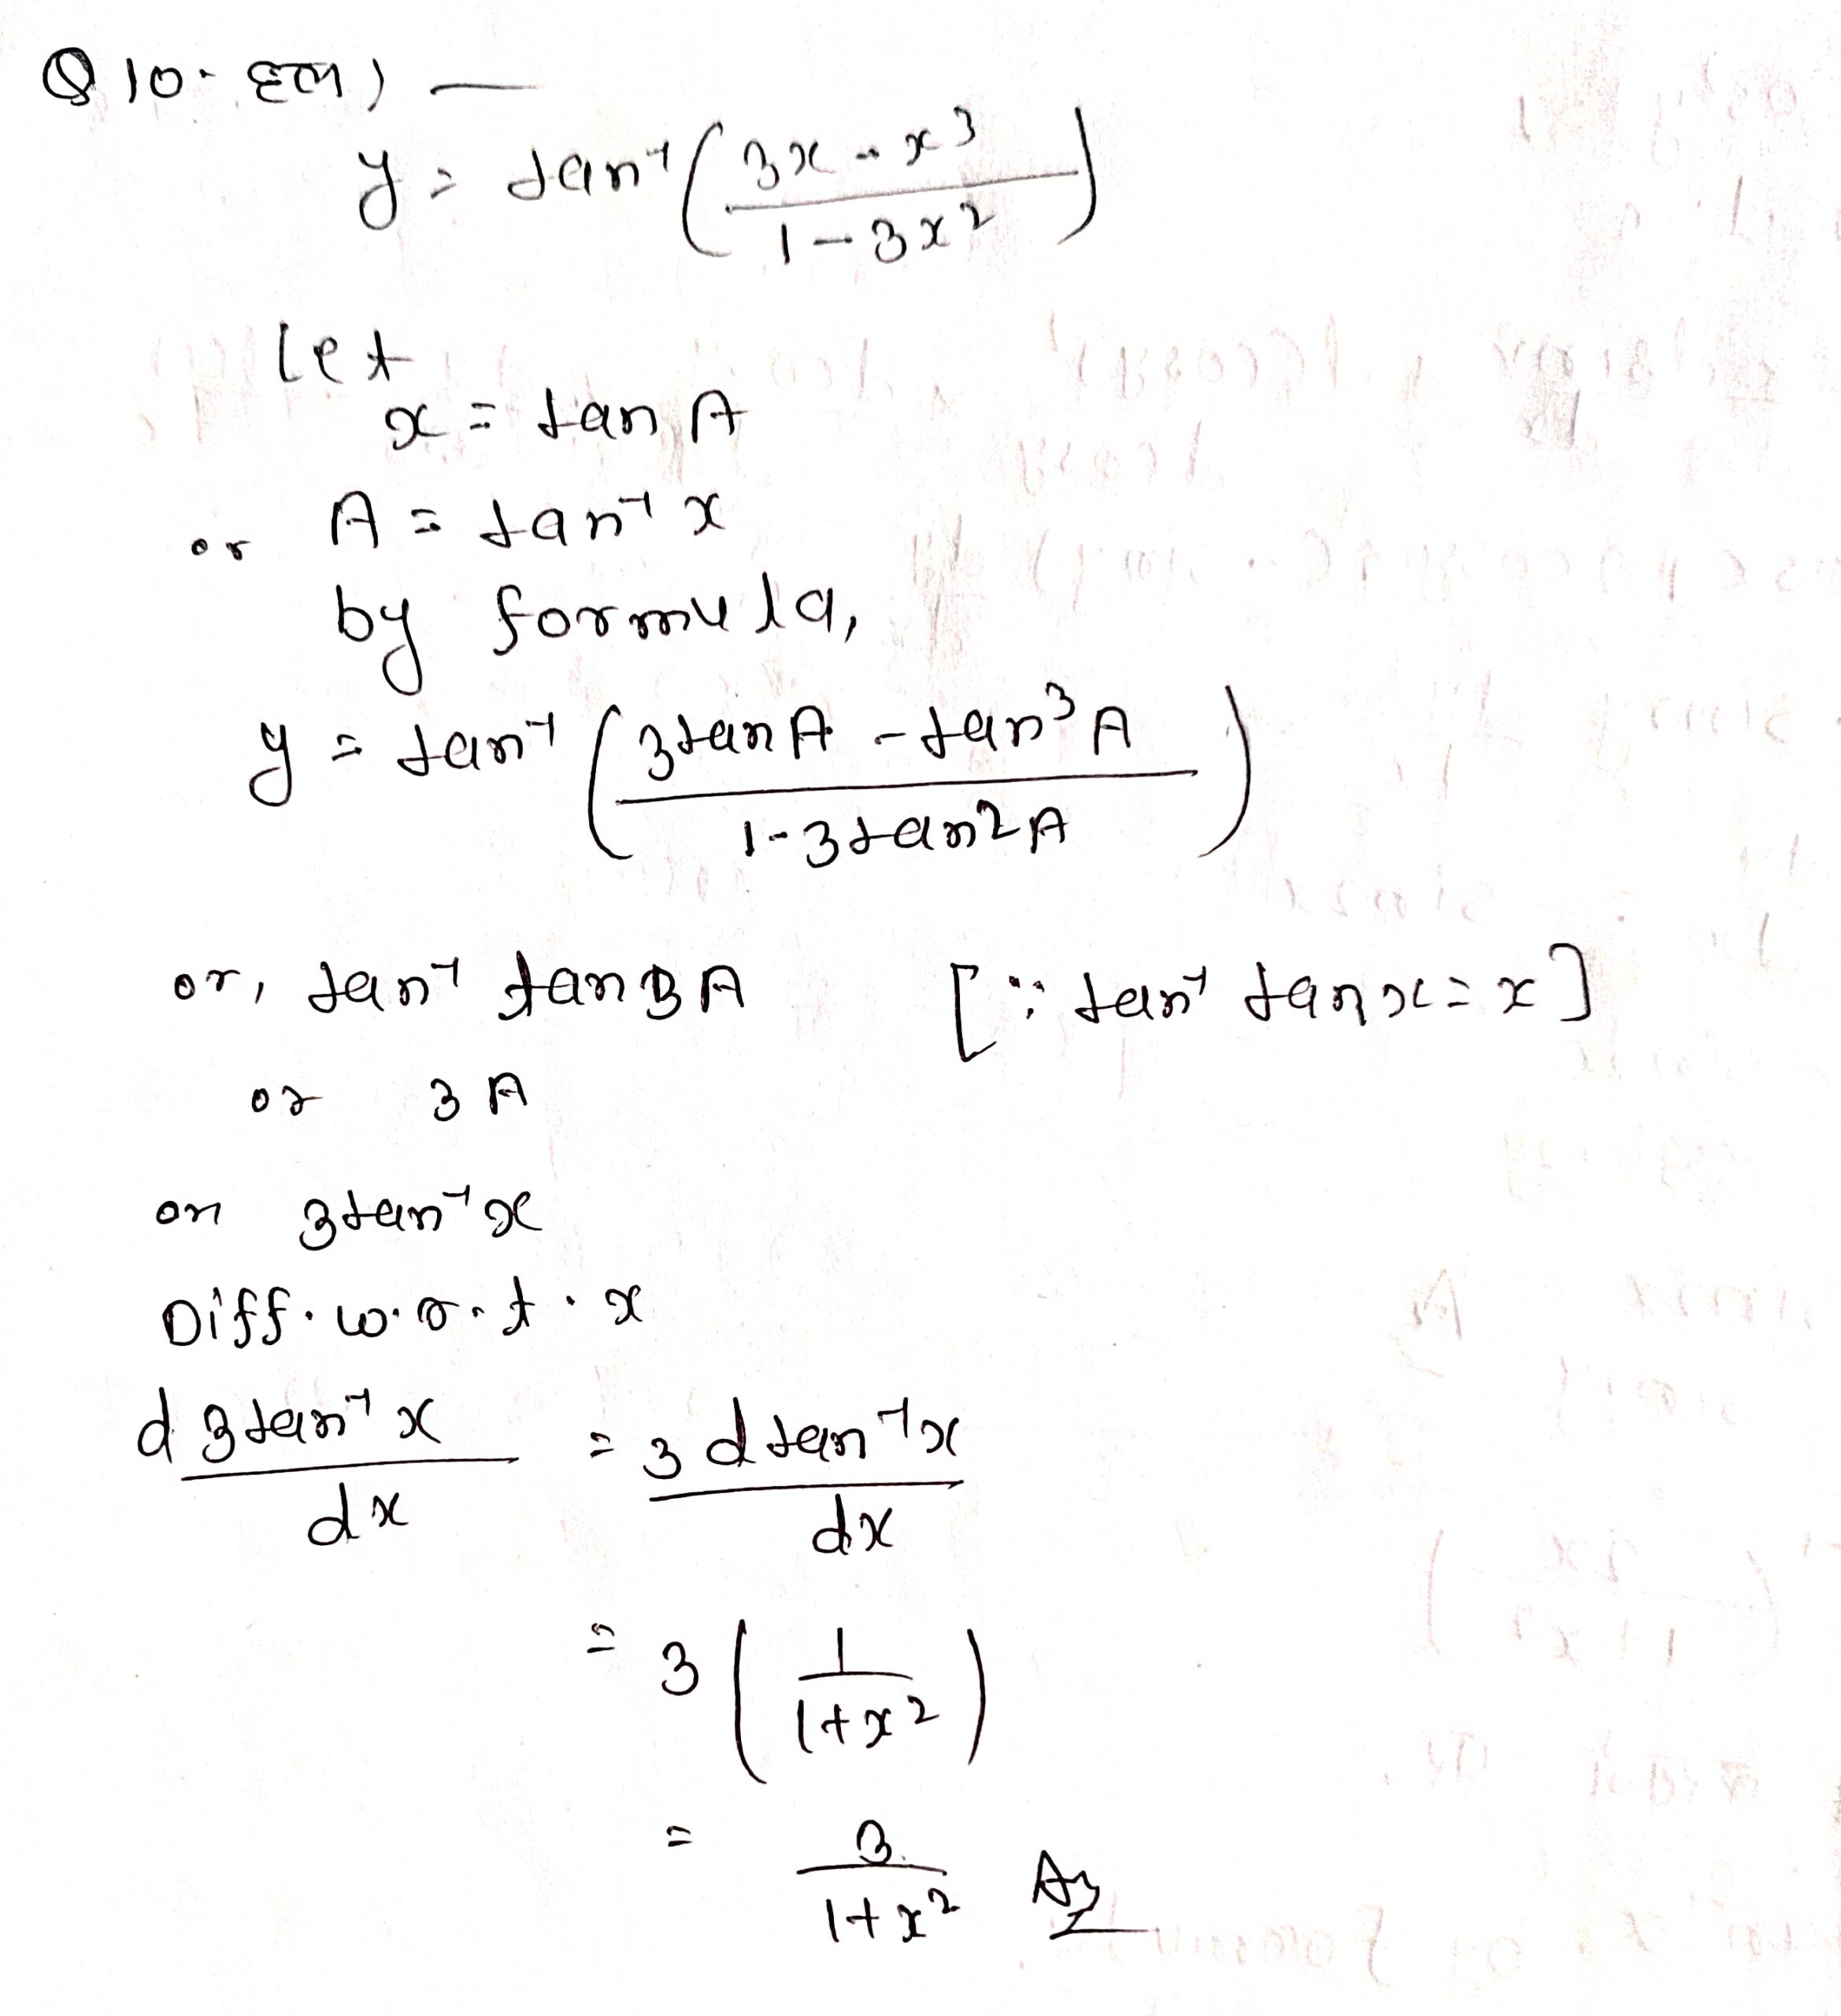 Q 10. हल) —
y = tan⁻¹ ( 3x - x³ / 1 - 3x² )
let
x = tan A
or A = tan⁻¹ x
by formula,
y = tan⁻¹ ( 3tan A - tan³ A / 1 - 3tan2A )
or, tan⁻¹ tan3A [∵ tan⁻¹ tanx = x]
or 3A
or 3tan⁻¹x
Diff. w.r.t. x
d 3tan⁻¹ x / dx = 3 d tan⁻¹x / dx
= 3 ( 1 / 1+x² )
= 3 / 1+x² Ans